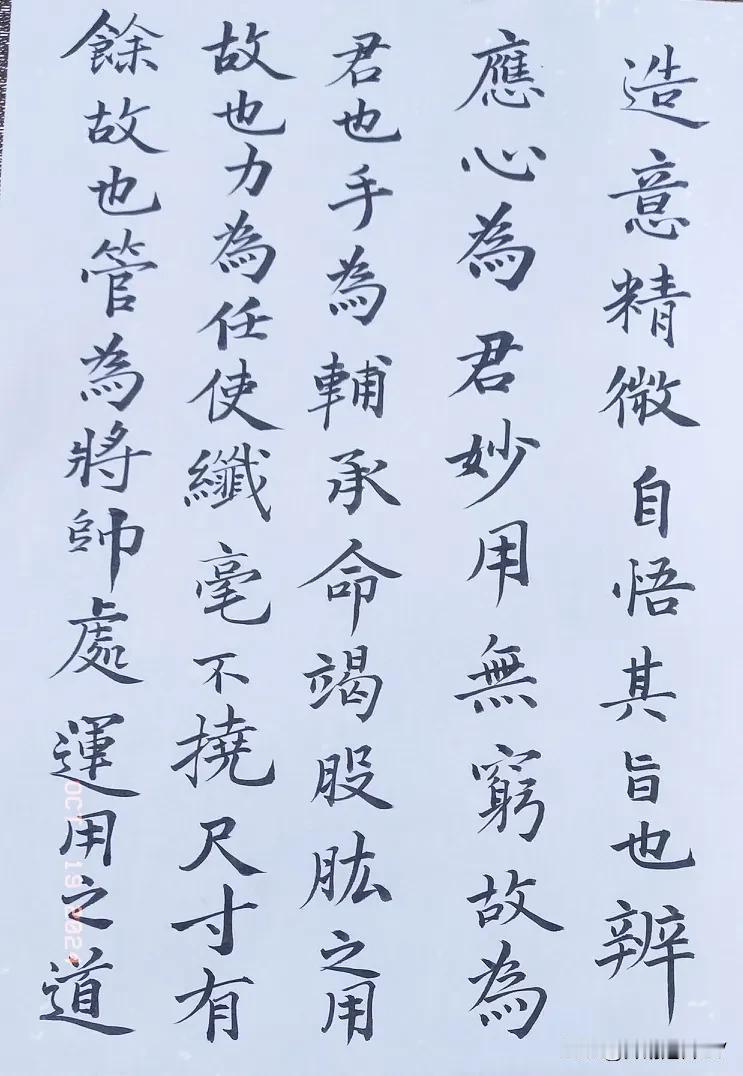 造意精微自悟其旨也辨
應心為君妙用無窮故為
君也手為輔承命竭股肱之用
故也力為任使纖毫不撓尺寸有
餘故也管為將帥處運用之道
OCT 19 2024